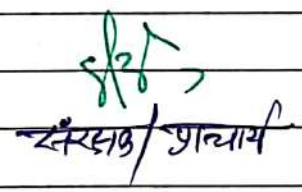 संरक्षक/प्राचार्य